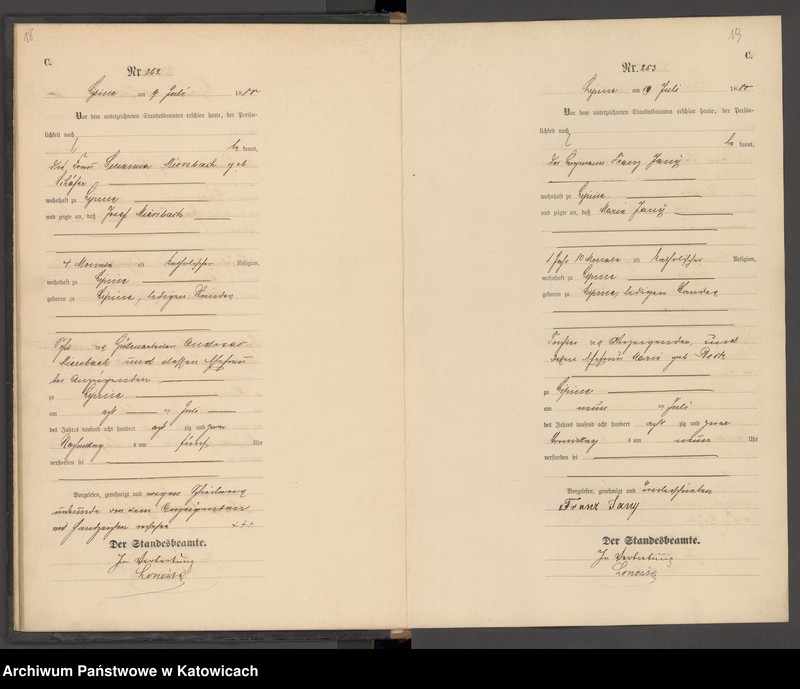 18
C.
Nr. 252
Lipine am 9 Juli 1880
Vor dem unterzeichneten Standesbeamten erschien heute, der Persön-
lichkeit nach
be kannt,
die Frau Susanna Miersbach geb
Schäfer
wohnhaft zu Lipine
und zeigte an, daß Josef Miersbach
4 Monate alt katholischer Religion,
wohnhaft zu Lipine
geboren zu Lipine, ledigen Standes
Sohn des Andreas
Miersbach und dessen Ehefrau
der Anzeigenden
zu Lipine
am acht ten Juli
des Jahres tausend acht hundert acht zig und zwar
Nachmittag s um fünf Uhr
verstorben sei
Vorgelesen, genehmigt und wegen Schreibens
unkunde von dem Anzeigenden
mit Handzeichen versehen +++
Der Standesbeamte.
In Vertretung
19
C.
Nr. 253
Lipine am 9 Juli 1880
Vor dem unterzeichneten Standesbeamten erschien heute, der Persön-
lichkeit nach
be kannt,
der Bergmann Franz Jany
wohnhaft zu Lipine
und zeigte an, daß Maria Jany
1 Jahr 10 Monate alt katholischer Religion,
wohnhaft zu Lipine
geboren zu Lipine, ledigen Standes
Tochter des Anzeigenden, und
dessen Ehefrau Marie geb
zu Lipine
am neun ten Juli
des Jahres tausend acht hundert acht zig und zwar
Vormittag s um neun Uhr
verstorben sei
Vorgelesen, genehmigt und unterschrieben
Franz Jany
Der Standesbeamte.
In Vertretung
Archiwum Państwowe w Katowicach